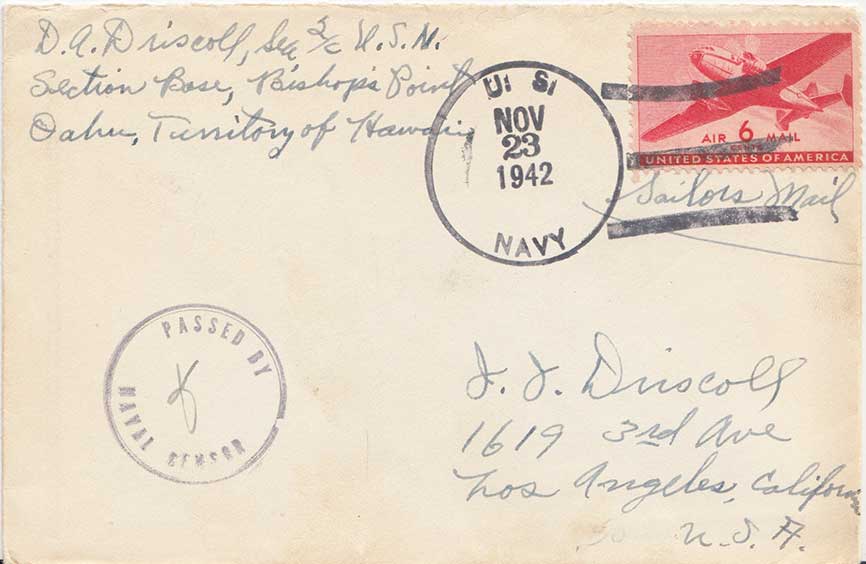 D. A. Driscoll, Sea 2/c U. S. N.
Section Base, Bishop's Point
Oahu, Territory of Hawaii
U. S.
NOV
23
1942
NAVY
AIR 6 MAIL
CENTS
UNITED STATES OF AMERICA
Sailors Mail
PASSED BY
NAVAL CENSOR
J. J. Driscoll
1619 3rd Ave
Los Angeles, California
U. S. A.